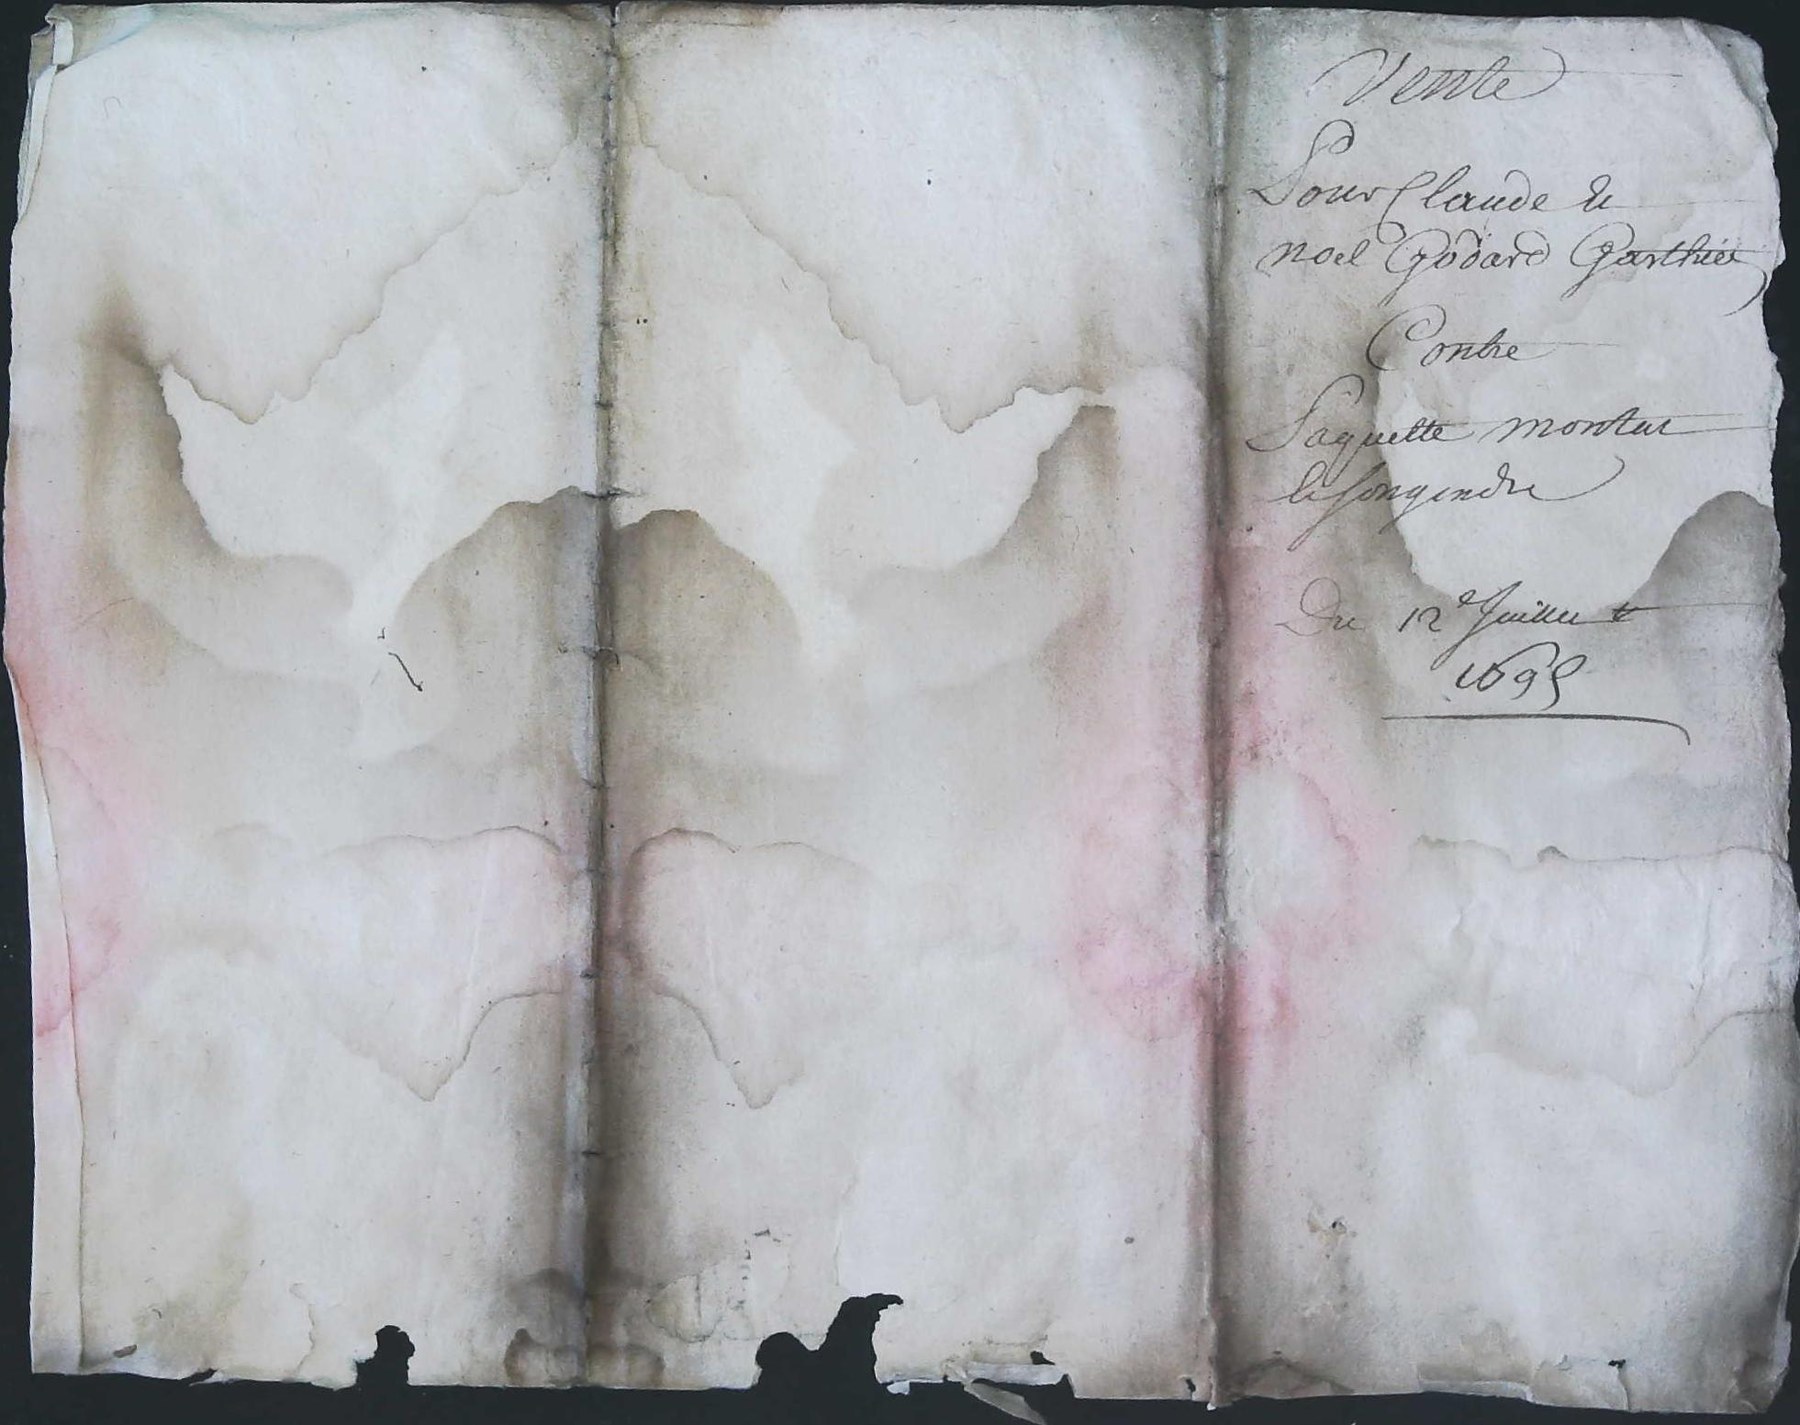 Vente
Pour Claude et
noel Godard Garthier
Contre
Paquette montar
et son gendre
Du 12e Juillet
1695